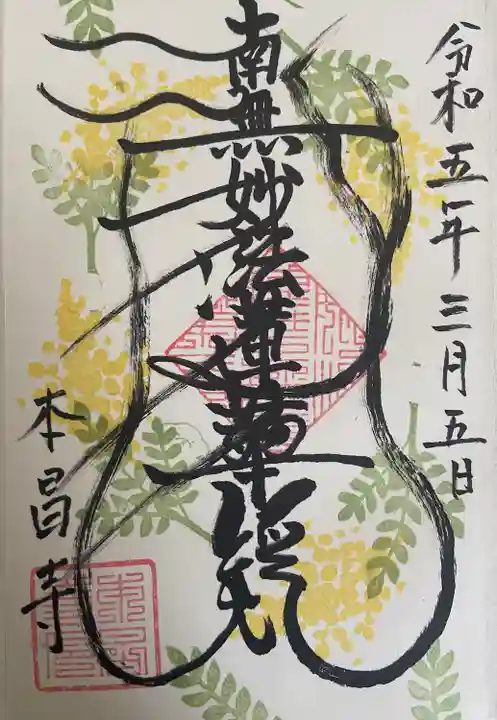 令和五年三月五日
南無妙法蓮華経
本昌寺